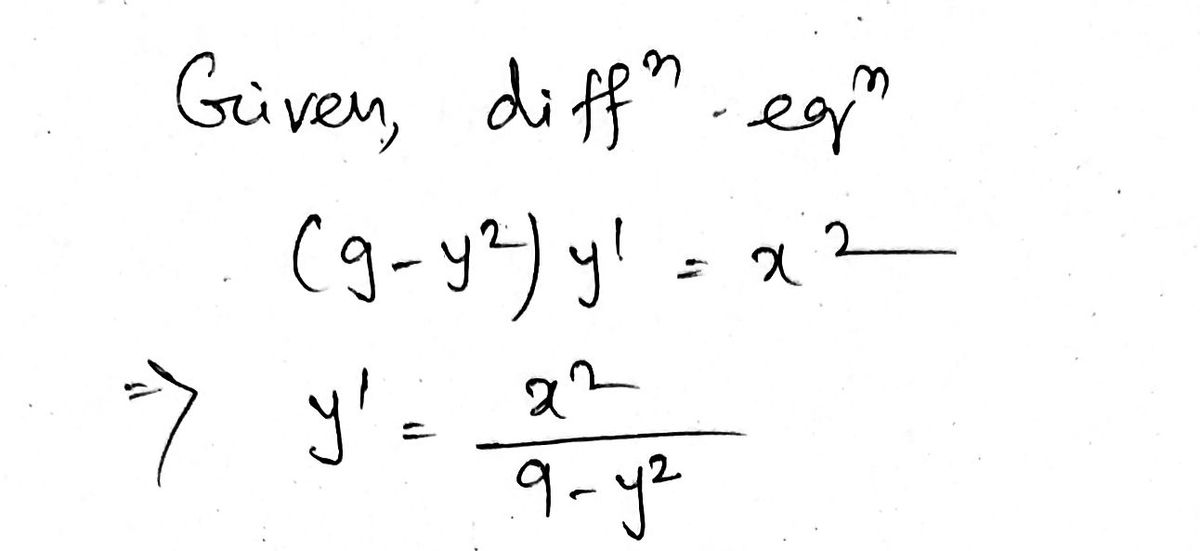 Given, diffⁿ. eqⁿ
(9-y²) y' = x²
=> y' = x²/(9-y²)